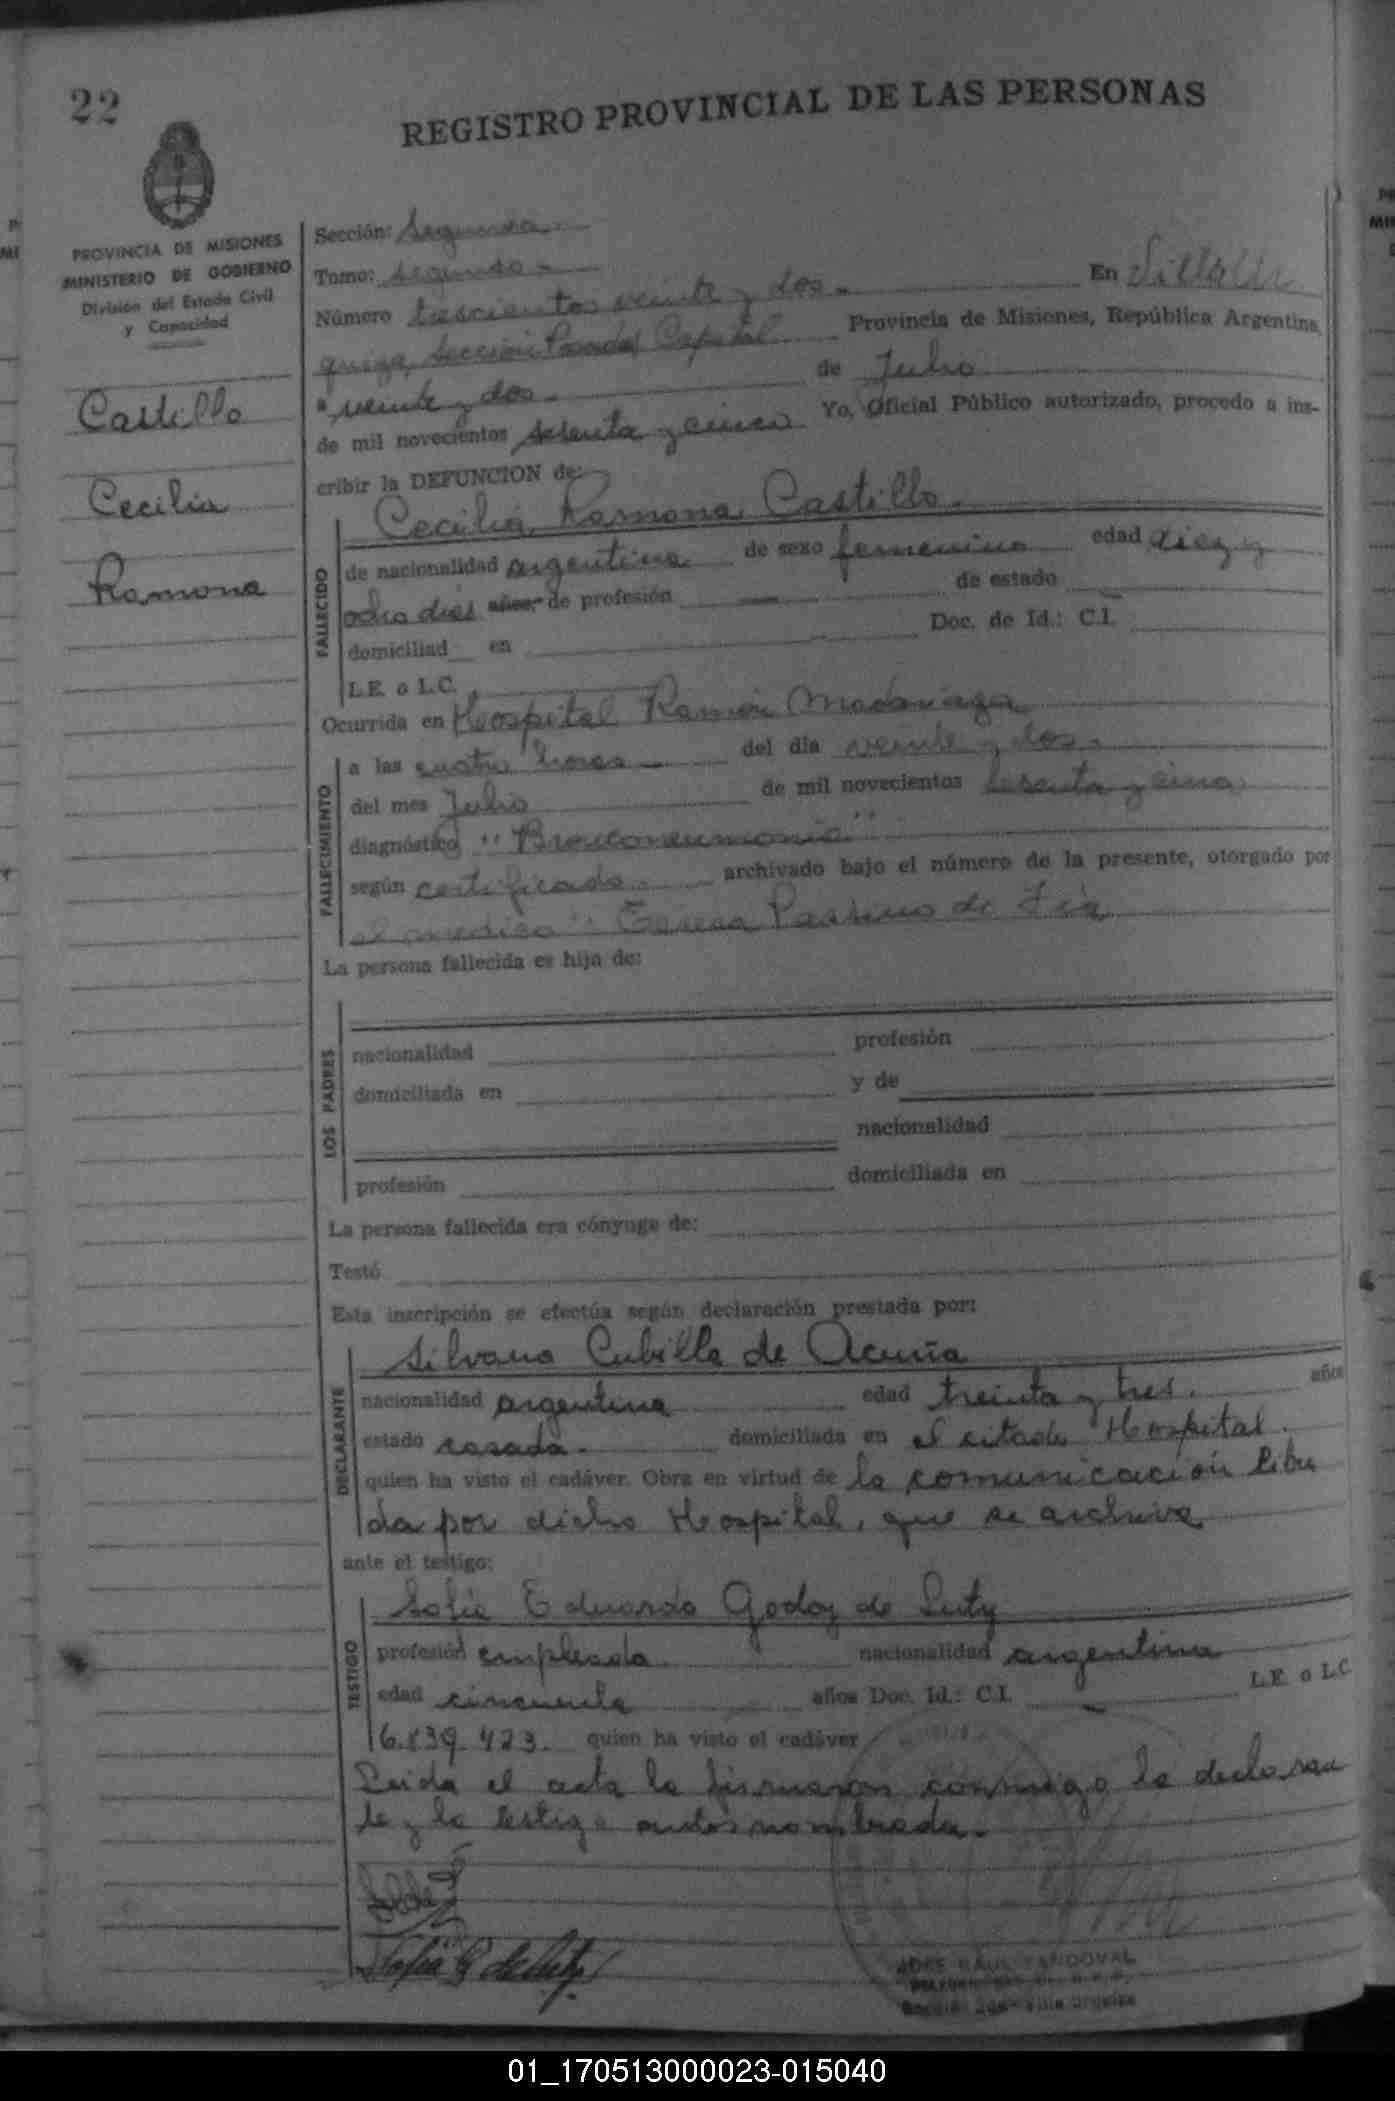 22
REGISTRO PROVINCIAL DE LAS PERSONAS
PROVINCIA DE MISIONES
MINISTERIO DE GOBIERNO
División del Estado Civil
y Capacidad
Castillo
Cecilia
Ramona
Sección: Segunda
Tomo: Segundo
Número trescientos veinte y dos En Villa Ur
quiza, Sección Posadas Capital Provincia de Misiones, República Argentina,
a veinte y dos de Julio
de mil novecientos sesenta y cinco Yo, Oficial Público autorizado, procedo a ins-
cribir la DEFUNCION de:
Cecilia Ramona Castillo
FALLECIDO
de nacionalidad argentina de sexo femenino edad diez y
ocho días años, de profesión de estado
domiciliad en Doc. de Id.: C.I.
L.E. o L.C.
Ocurrida en Hospital Ramón Madariaga
FALLECIMIENTO
a las cuatro horas del día veinte y dos
del mes Julio de mil novecientos sesenta y cinco
diagnóstico "Bronconeumonia"
según certificado archivado bajo el número de la presente, otorgado por
el medico Teresa de
La persona fallecida es hija de:
LOS PADRES
nacionalidad profesión
domiciliada en y de
nacionalidad
profesión domiciliada en
La persona fallecida era cónyuge de:
Testó
Esta inscripción se efectúa según declaración prestada por:
Silvana Cubilla de Acuña
DECLARANTE
nacionalidad argentina edad treinta y tres. años
estado casada. domiciliada en el citado Hospital.
quien ha visto el cadáver. Obra en virtud de la comunicación libra
da por dicho Hospital, que se archiva
ante el testigo:
Sofia Eduarda Godoy de Luty
TESTIGO
profesión empleada nacionalidad argentina
edad cincuenta años Doc. Id.: C.I. L.E. o L.C.
6.839.423. quien ha visto el cadáver
Leida el acta la firmaron conmigo la declaran
te y la testigo antes nombrada.
Sofia G de Luty
JOSE RAUL SANDOVAL
01_170513000023-015040